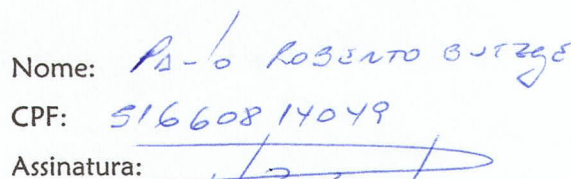 Nome: Paulo ROBERTO
CPF: 51660814049
Assinatura: